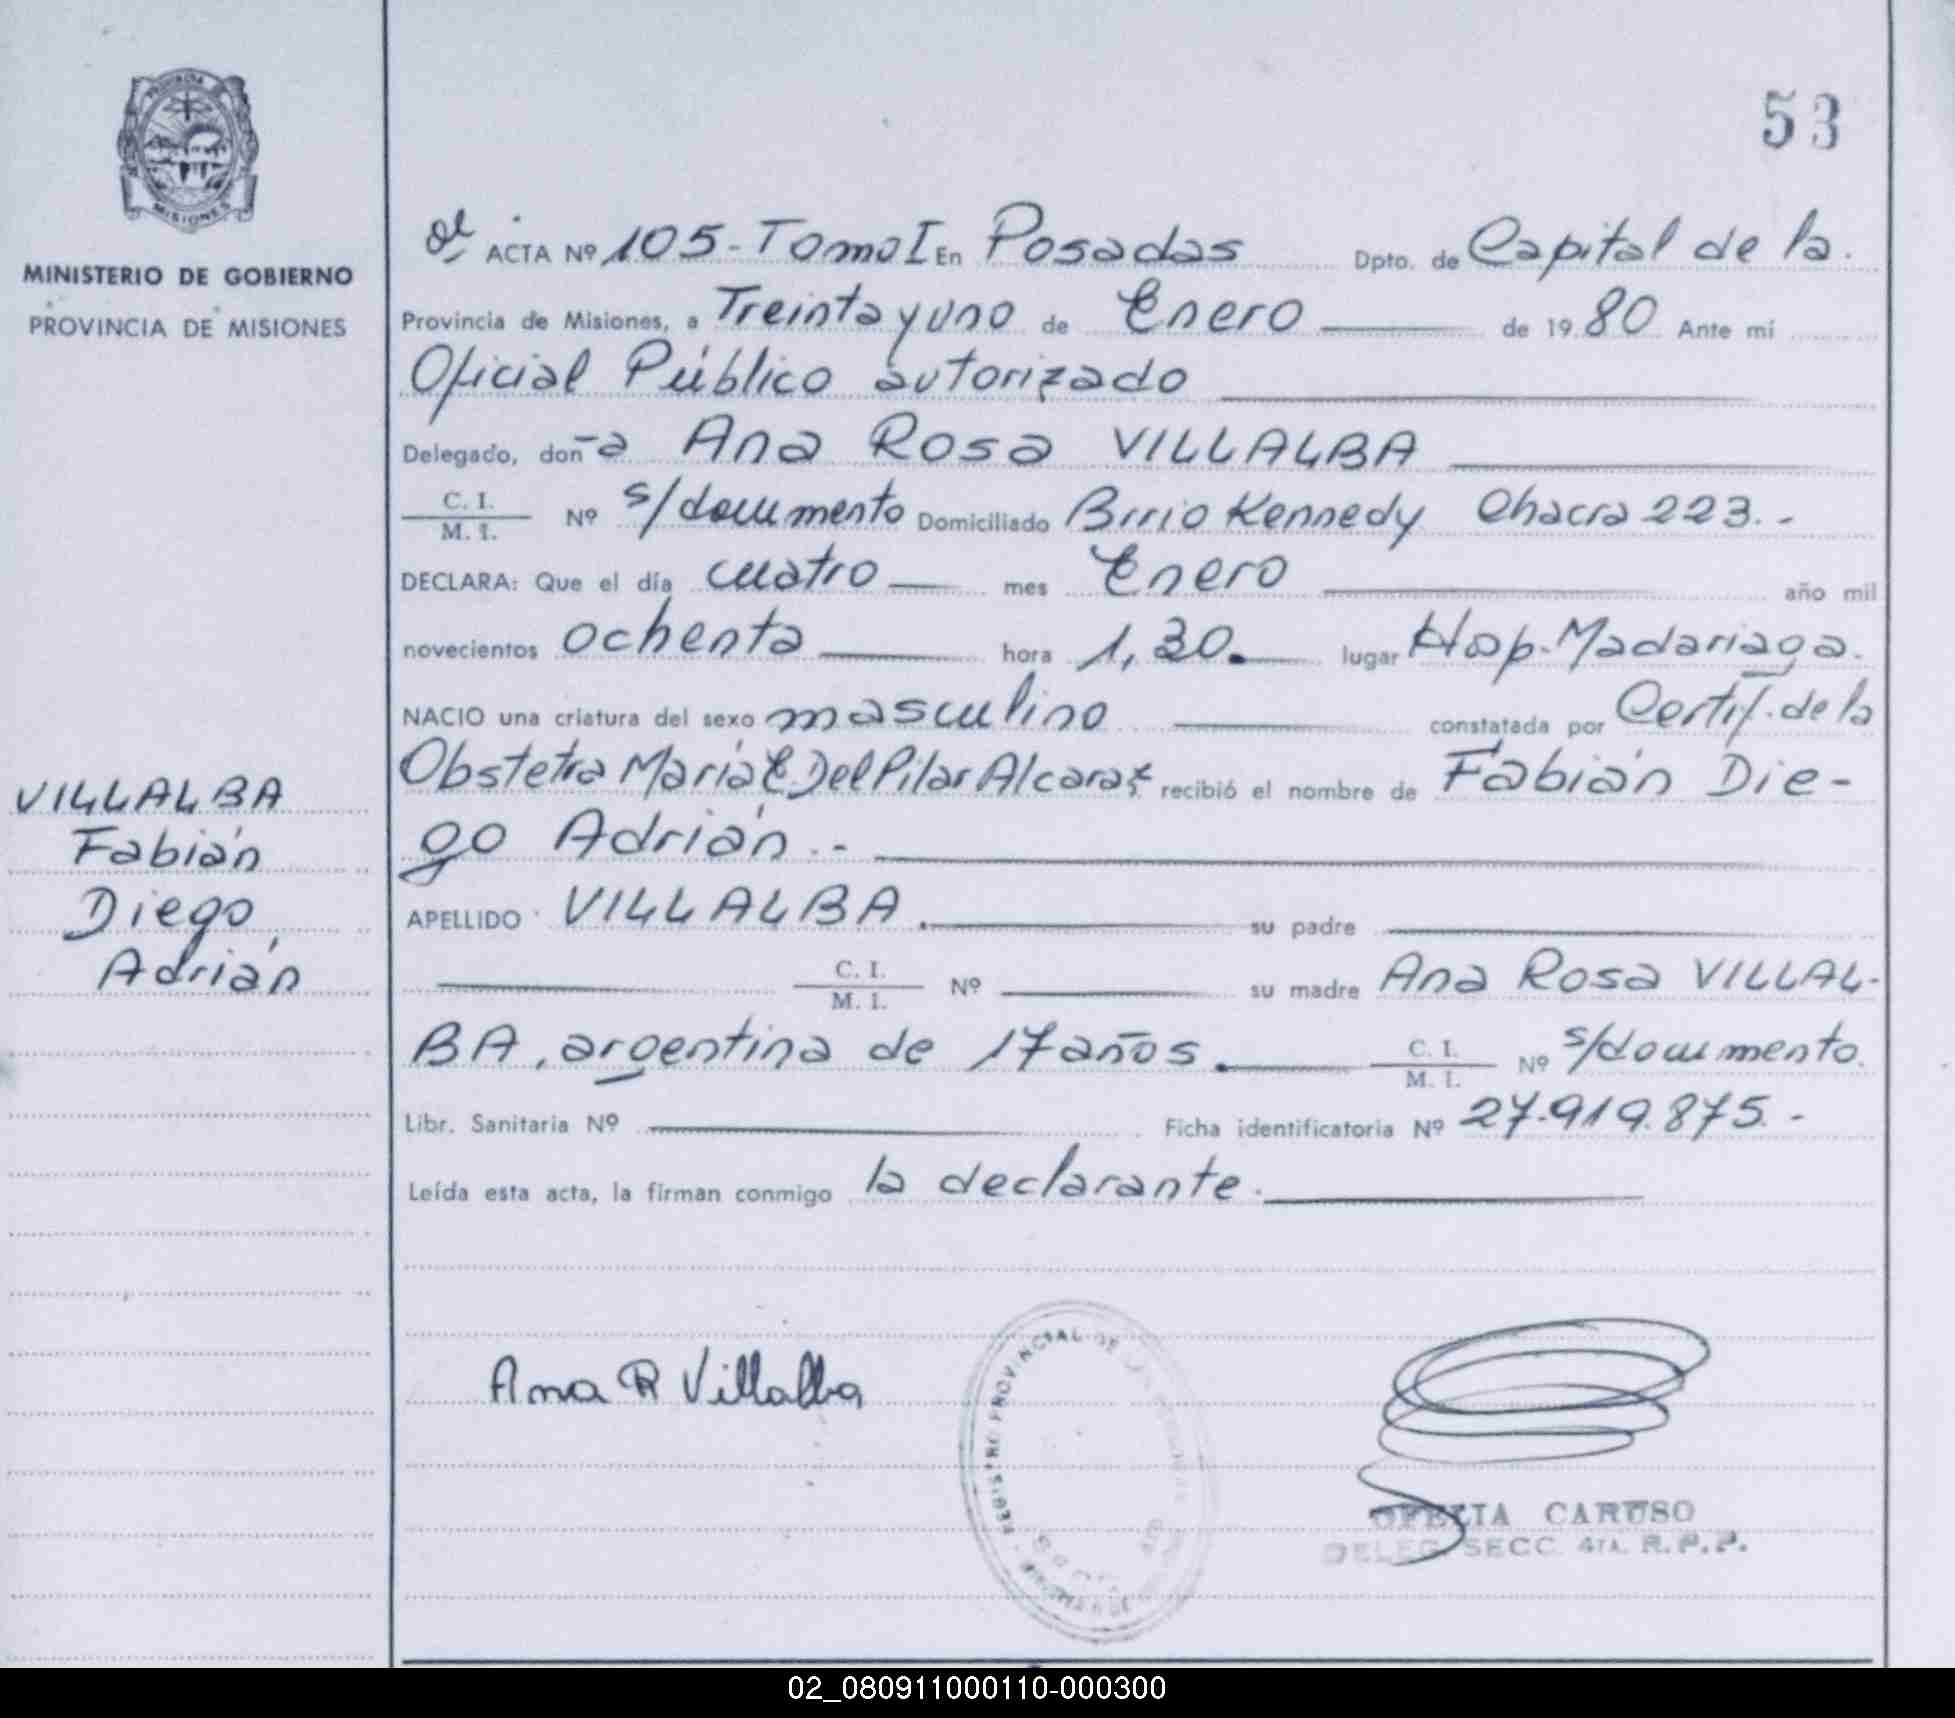 PROVINCIA
MISIONES
MINISTERIO DE GOBIERNO
PROVINCIA DE MISIONES
VILLALBA
Fabián
Diego
Adrián
53
ACTA Nº 105-Tomo I En Posadas Dpto. de Capital de la
Provincia de Misiones, a Treinta y uno de Enero de 1980 Ante mí
Oficial Público autorizado
Delegado, don-a Ana Rosa VILLALBA
C. I. M. I. Nº s/documento Domiciliado Brrio Kennedy Chacra 223.-
DECLARA: Que el día cuatro mes Enero año mil
novecientos ochenta hora 1,30. lugar Hosp. Madariaga.
NACIO una criatura del sexo masculino constatada por Certif. de la
Obstetra María E. Del Pilar Alcaraz recibió el nombre de Fabián Die-
go Adrián.-
APELLIDO VILLALBA. su padre
C. I. M. I. Nº su madre Ana Rosa VILLAL-
BA, argentina de 17 años. C. I. M. I. Nº s/documento.
Libr. Sanitaria Nº Ficha identificatoria Nº 27.919.875.-
Leída esta acta, la firman conmigo la declarante.
Ana R Villalba
REGISTRO PROVINCIAL DE
OFELIA CARUSO
DELEG. SECC. 4TA. R.P.P.
02_080911000110-000300